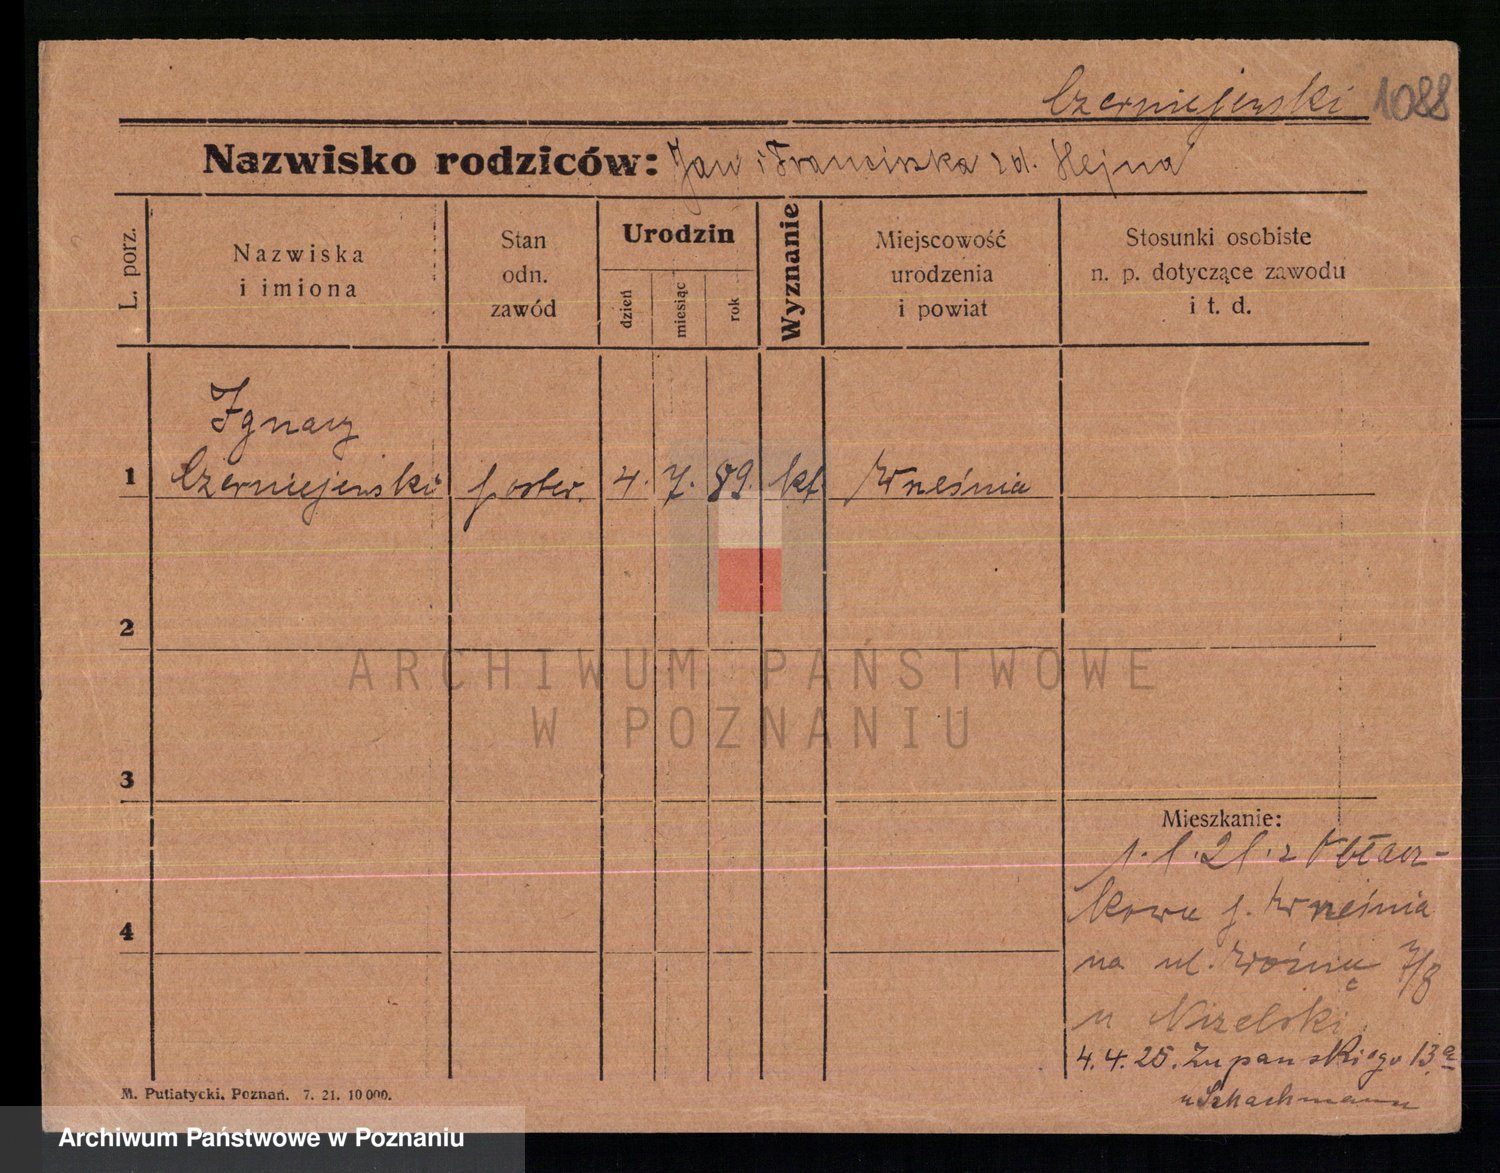 Czerniejewski 1088
Nazwisko rodziców: Jan i Franciszka zd. Hejna
L. porz.
Nazwiska
i imiona
Stan
odn.
zawód
Urodzin
dzień
miesiąc
rok
Wyznanie
Miejscowość
urodzenia
i powiat
Stosunki osobiste
n. p. dotyczące zawodu
i t. d.
Ignacy
1 Czerniejewski poster. 4. 7. 89. kt Września
2
ARCHIWUM PAŃSTWOWE
W POZNANIU
3
Mieszkanie:
21. z Obłacz-
kowa p. Września
na ul. Woźną 7/8
u Nizelski
4. 4. 25. Żupańskiego 13a
u Schachmann
4
M. Putiatycki, Poznań. 7. 21. 10 000.
Archiwum Państwowe w Poznaniu